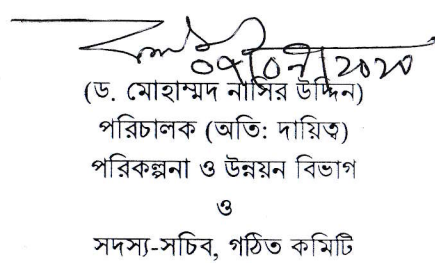 ০৭/০৭/২০২০
(ড. মোহাম্মদ নাসির উদ্দিন)
পরিচালক (অতি: দায়িত্ব)
পরিকল্পনা ও উন্নয়ন বিভাগ
ও
সদস্য-সচিব, গঠিত কমিটি